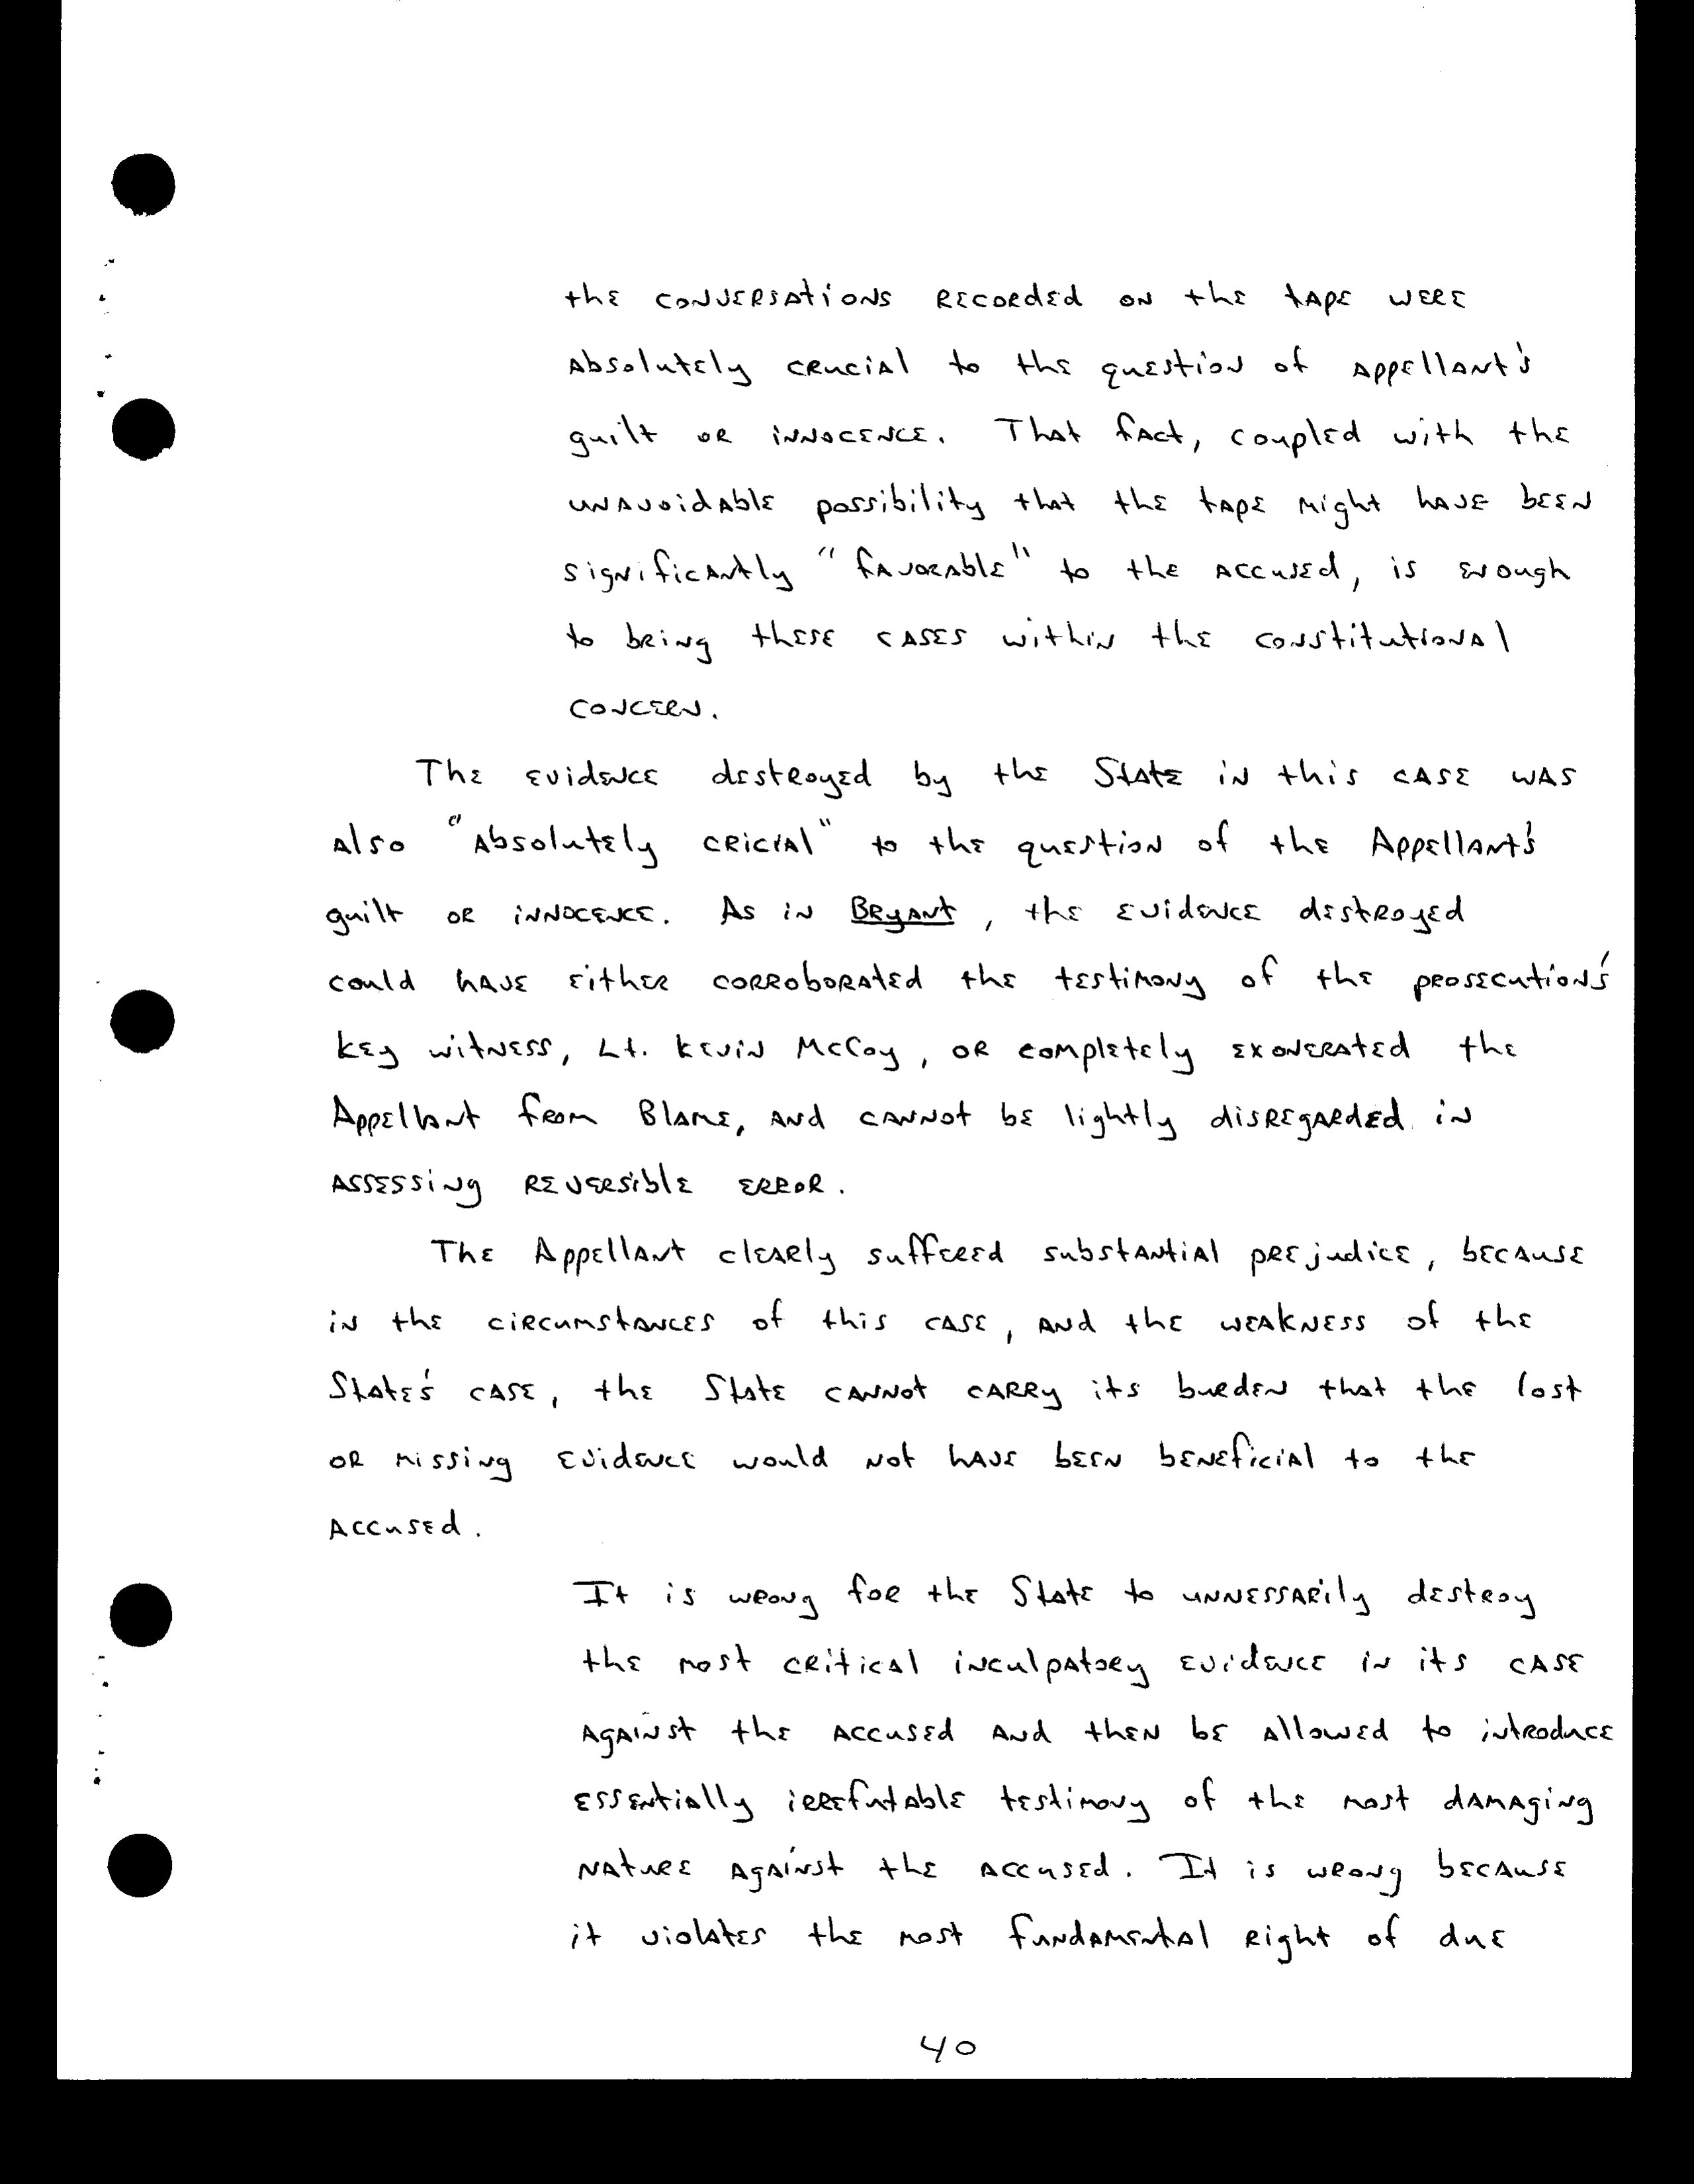 the conversations recorded on the tape were
absolutely crucial to the question of appellant's
guilt or innocence. That fact, coupled with the
unavoidable possibility that the tape might have been
significantly "favorable" to the accused, is enough
to bring these cases within the constitutional
concern.
The evidence destroyed by the State in this case was
also "absolutely cricial" to the question of the Appellant's
guilt or innocence. As in Bryant, the evidence destroyed
could have either corroborated the testimony of the prosecution's
key witness, Lt. Kevin McCoy, or completely exonerated the
Appellant from Blame, and cannot be lightly disregarded in
assessing reversible error.
The Appellant clearly suffered substantial prejudice, because
in the circumstances of this case, and the weakness of the
State's case, the State cannot carry its burden that the lost
or missing evidence would not have been beneficial to the
accused.
It is wrong for the State to unnessarily destroy
the most critical inculpatory evidence in its case
against the accused and then be allowed to introduce
essentially irrefutable testimony of the most damaging
nature against the accused. It is wrong because
it violates the most fundamental right of due
40